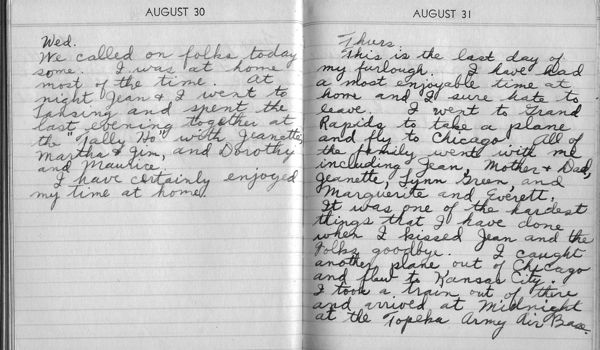 AUGUST 30
Wed.
We called on folks today
some. I was at home
most of the time. At
night Jean & I went to
Lansing and spent the
last evening together at
the "Tally Ho" with Jeanette,
Martha & Jim, and Dorothy
and Maurice.
I have certainly enjoyed
my time at home.
AUGUST 31
Thurs.
This is the last day of
my furlough. I have had
a most enjoyable time at
home and I sure hate to
leave. I went to Grand
Rapids to take a plane
and fly to Chicago. All of
the family went with me
including Jean, Mother & Dad,
Jeanette, Lynn Green, and
Marguerite and Everett.
It was one of the hardest
things that I have done
when I kissed Jean and the
Folks goodbye. I caught
another plane out of Chicago
and flew to Kansas City.
I took a train out of there
and arrived at Midnight
at the Topeka Army Air Base.